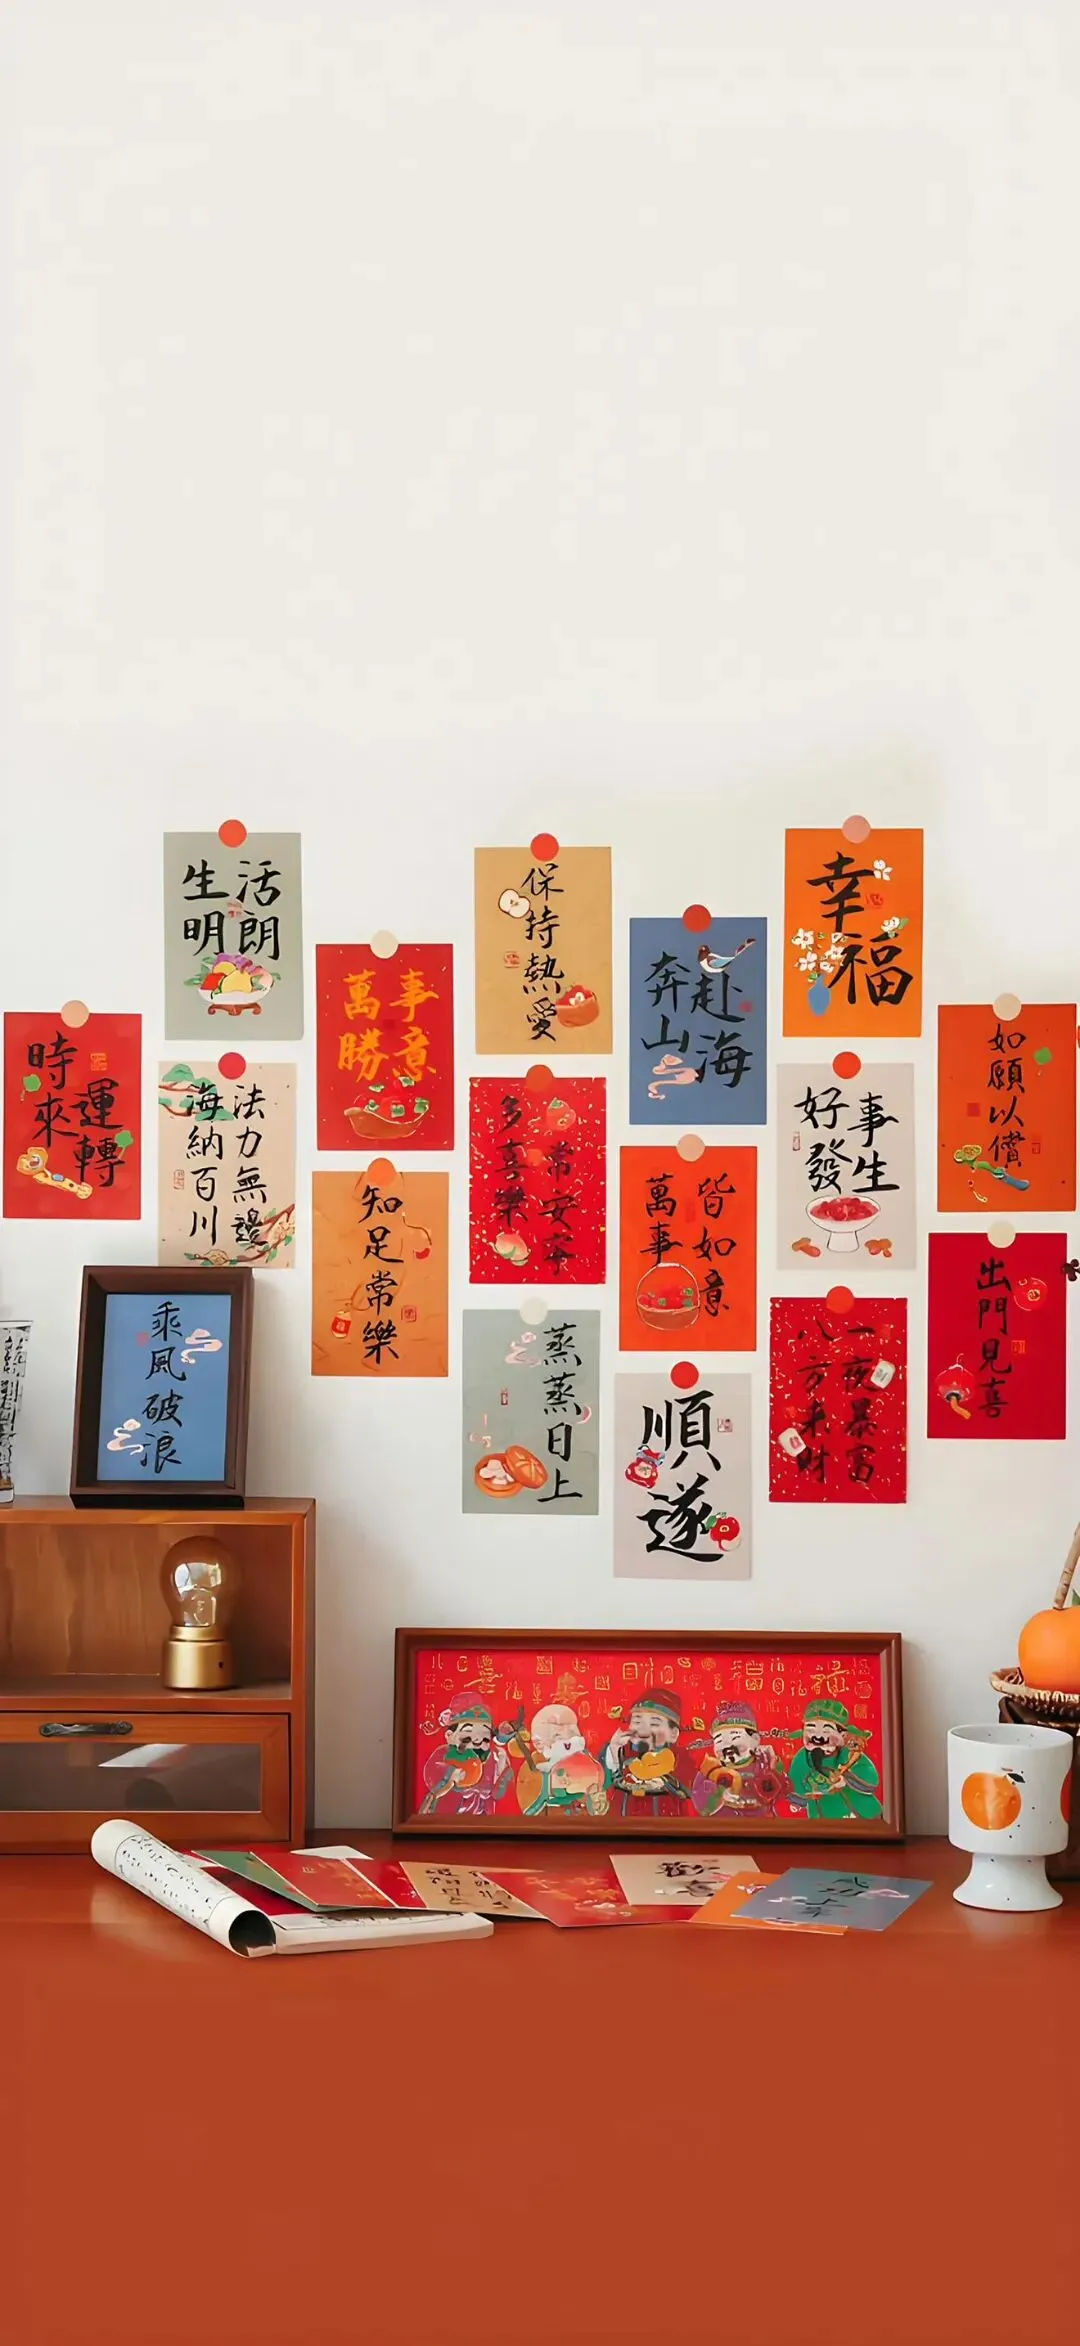 生活
明朗
保持熱愛
幸福
奔赴
山海
萬事
勝意
時來
運轉
如願以償
法力無邊
海納百川
好事
發生
多喜樂
常安寧
萬事
皆如意
知足常樂
出門見喜
乘風破浪
一夜暴富
八方來財
蒸蒸日上
順遂
歡喜